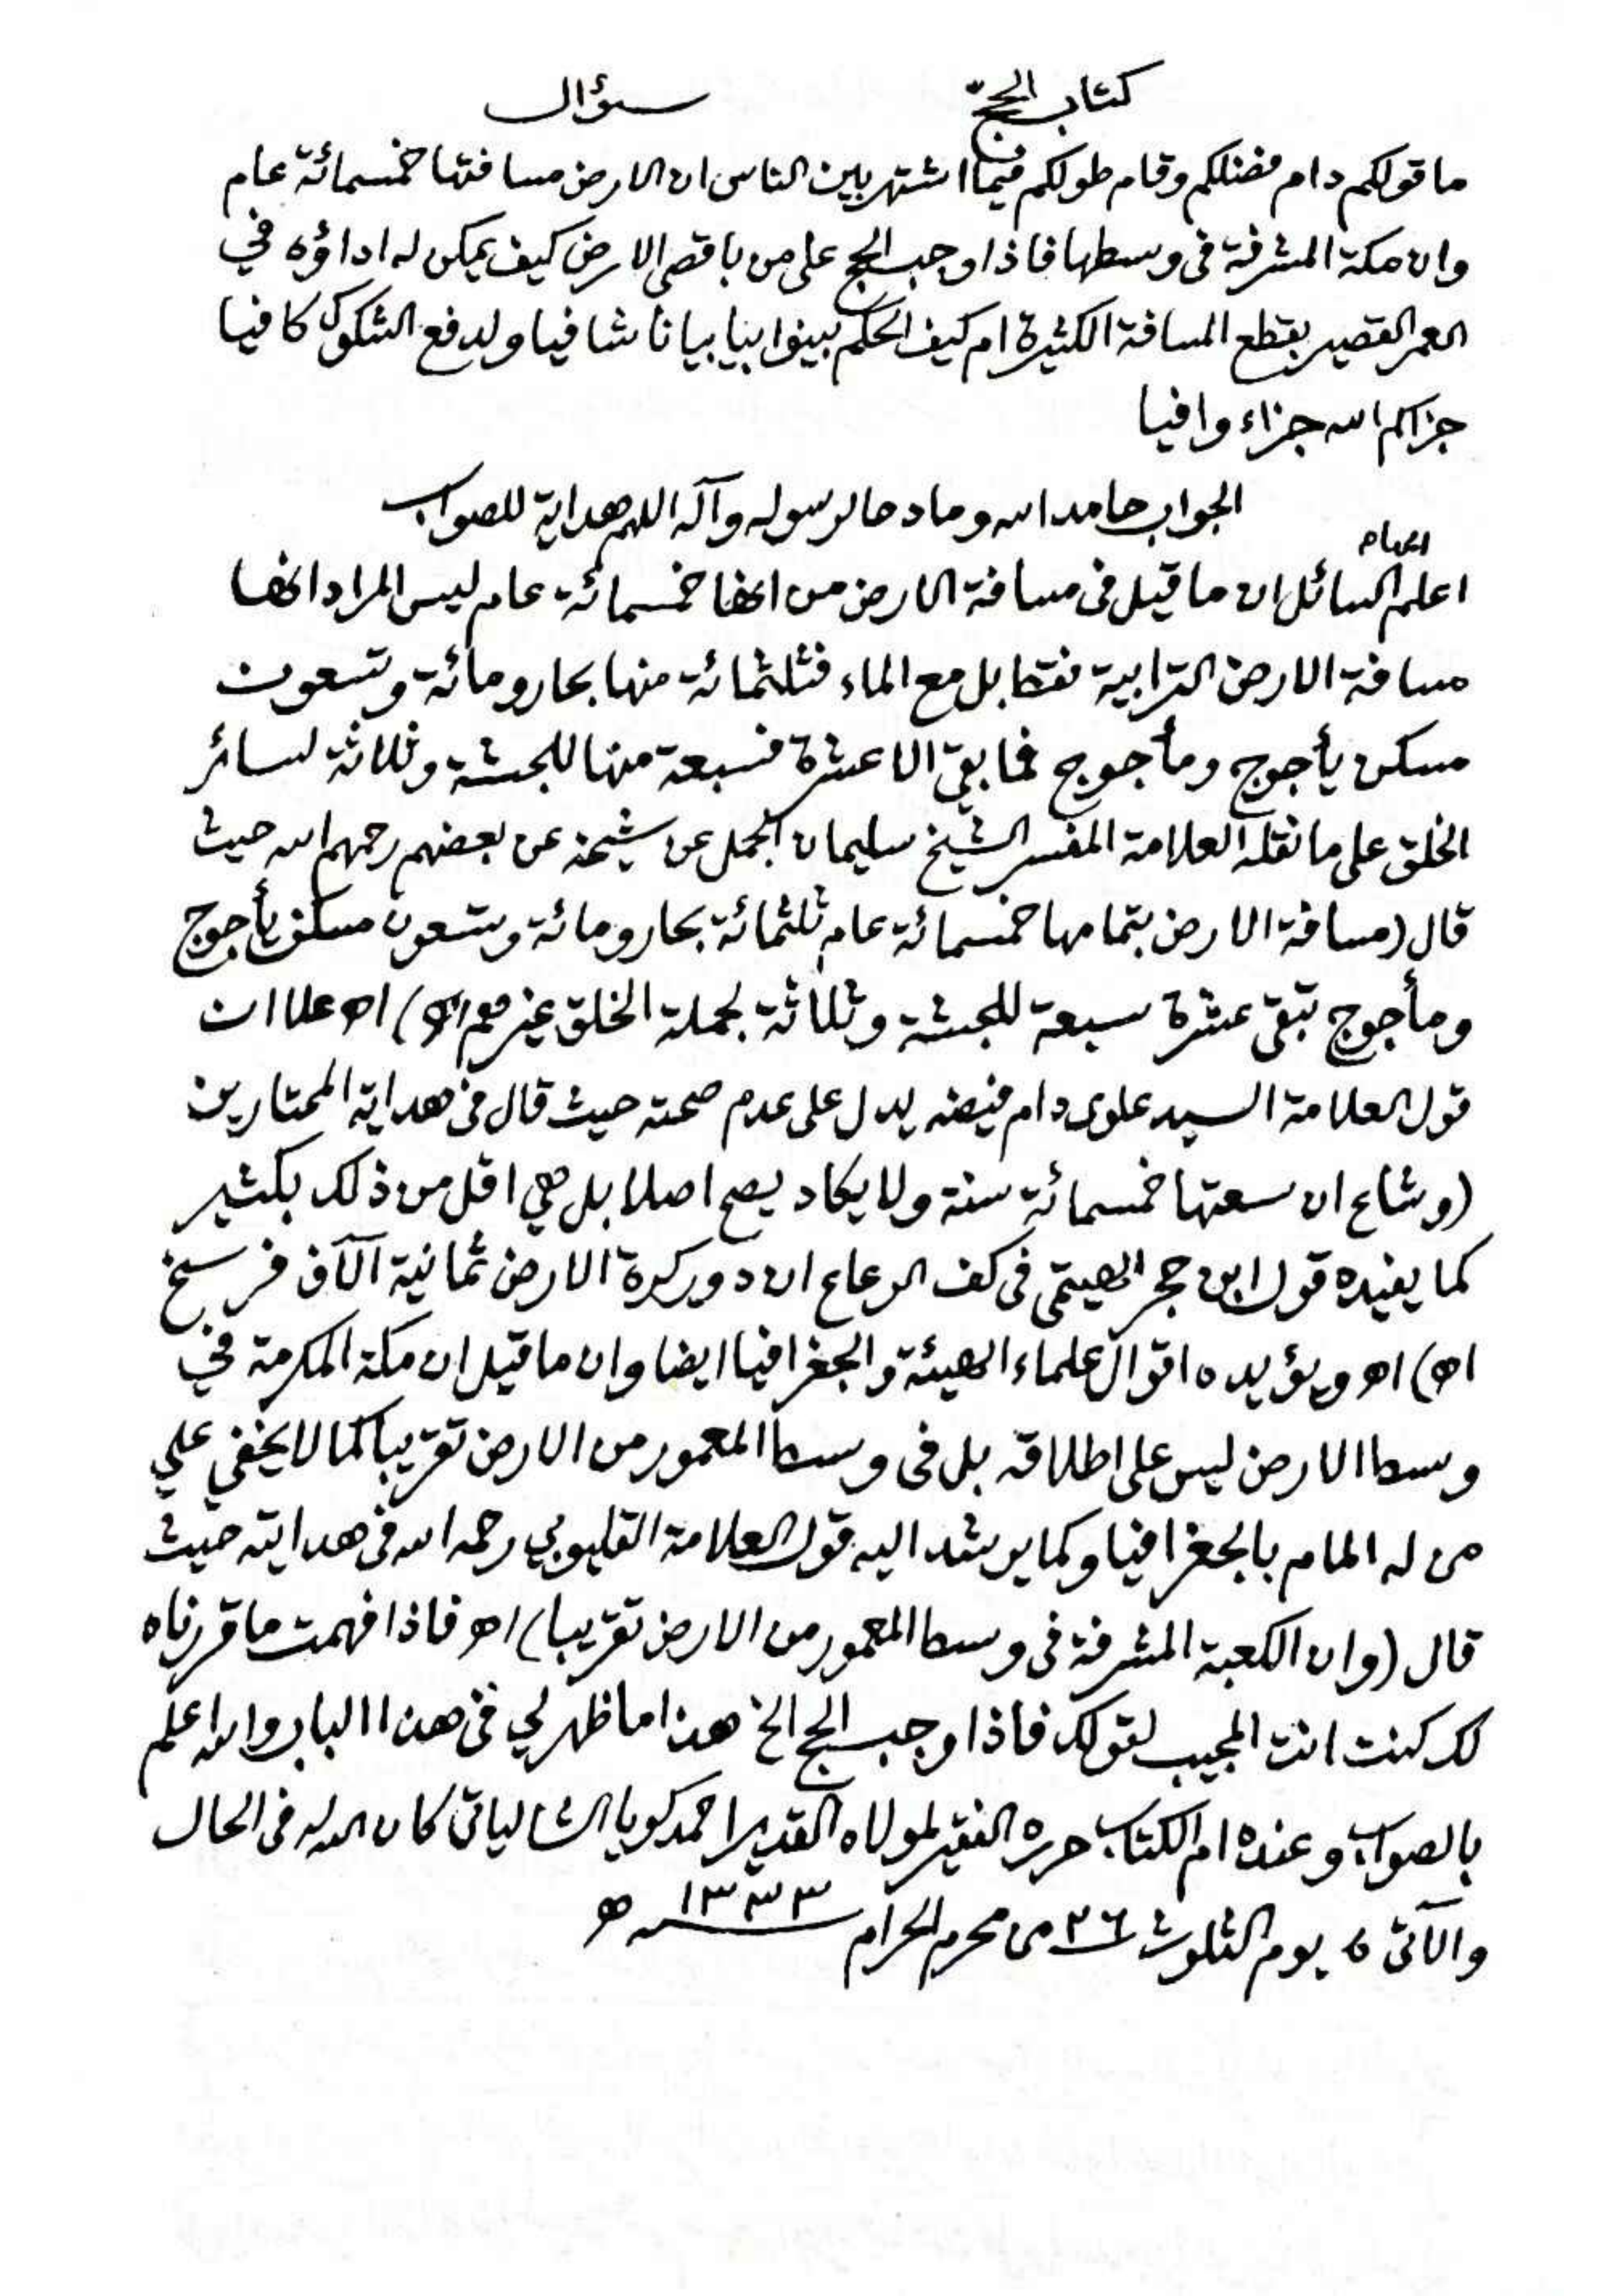 كتاب الحج سؤال
ما قولكم دام فضلكم وقام طولكم فيما اشتهر بين الناس ان الارض مسافتها خمسمائة عام
وان مكة المشرفة في وسطها فاذا وجب الحج على من باقصى الارض كيف يمكن له اداؤه في
العمر القصير بقطع المسافة الكثيرة ام كيف الحكم بينوا بيانا شافيا ولدفع الشكوك كافيا
جزاكم الله جزاء وافيا
الجواب حامدا لله ومادحا لرسوله وآله اللهم هداية للصواب
اعلم ايها السائل ان ما قيل في مسافة الارض من انها خمسمائة عام ليس المراد انها
مسافة الارض الترابية فقط بل مع الماء فثلثمائة منها بحار ومائة وتسعون
مسكن يأجوج ومأجوج فما بقي الا عشرة فسبعة منها للحبشة وثلاثة لسائر
الخلق على ما نقله العلامة المفسر الشيخ سليمان الجمل عن شيخه عن بعضهم رحمهم الله حيث
قال (مسافة الارض بتمامها خمسمائة عام ثلثمائة بحار ومائة وتسعون مسكن يأجوج
ومأجوج تبقى عشرة سبعة للحبشة وثلاثة لجملة الخلق غيرهم اه) اه علا ان
قول العلامة السيد علوي دام فيضه يدل على عدم صحته حيث قال في هداية المحتارين
(وشاع ان سعتها خمسمائة سنة ولا يكاد يصح اصلا بل هي اقل من ذلك بكثير
كما يفيده قول ابن حجر الهيتمي في كف الرعاع ان دور كرة الارض ثمانية آلاف فرسخ
اه) اه ويؤيده اقوال علماء الهيئة والجغرافيا ايضا وان ما قيل ان مكة المكرمة في
وسط الارض ليس على اطلاقه بل في وسط المعمور من الارض تقريبا كما لا يخفي علي
من له المام بالجغرافيا وكما يرشد اليه قول العلامة القليوبي رحمه الله في هدايته حيث
قال (وان الكعبة المشرفة في وسط المعمور من الارض تقريبا) اه فاذا فهمت ما قررناه
لك كنت انت المجيب لقولك فاذا وجب الحج الخ هذا ما ظهر لي في هذا الباب والله اعلم
بالصواب وعنده ام الكتاب حرره الفقير لمولاه القدير احمد كويا الشالياتي كان الله له في الحال
والآتي يوم الثلوث ٢٦ من محرم الحرام ١٣٣٣ ه